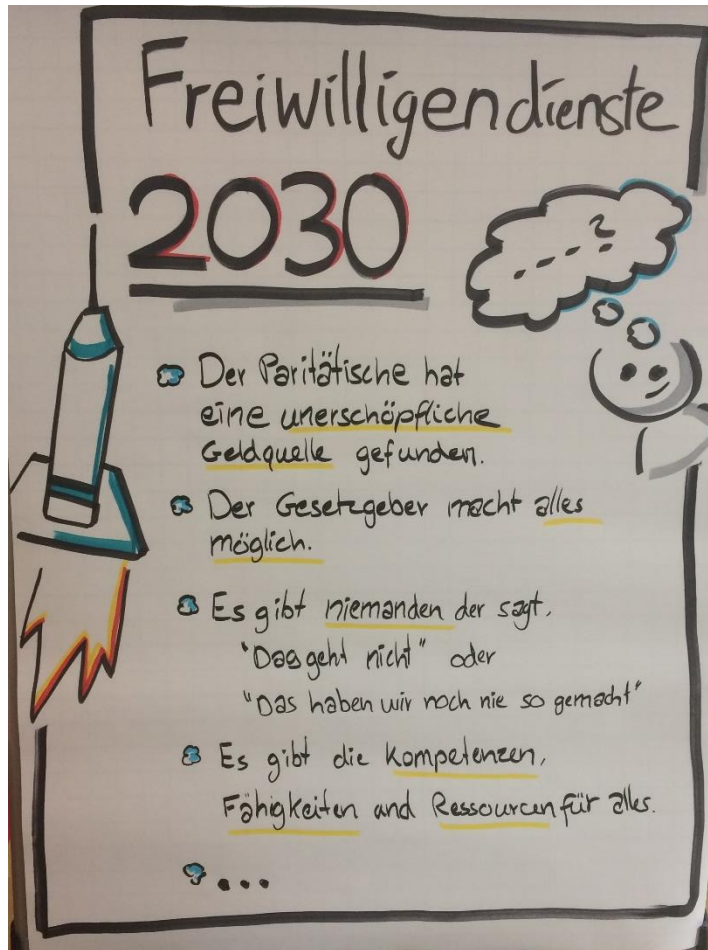 Freiwilligendienste
2030
?
Der Paritätische hat
eine unerschöpfliche
Geldquelle gefunden.
Der Gesetzgeber macht alles
möglich.
Es gibt niemanden der sagt,
"Das geht nicht" oder
"Das haben wir noch nie so gemacht"
Es gibt die Kompetenzen,
Fähigkeiten und Ressourcen für alles.
...